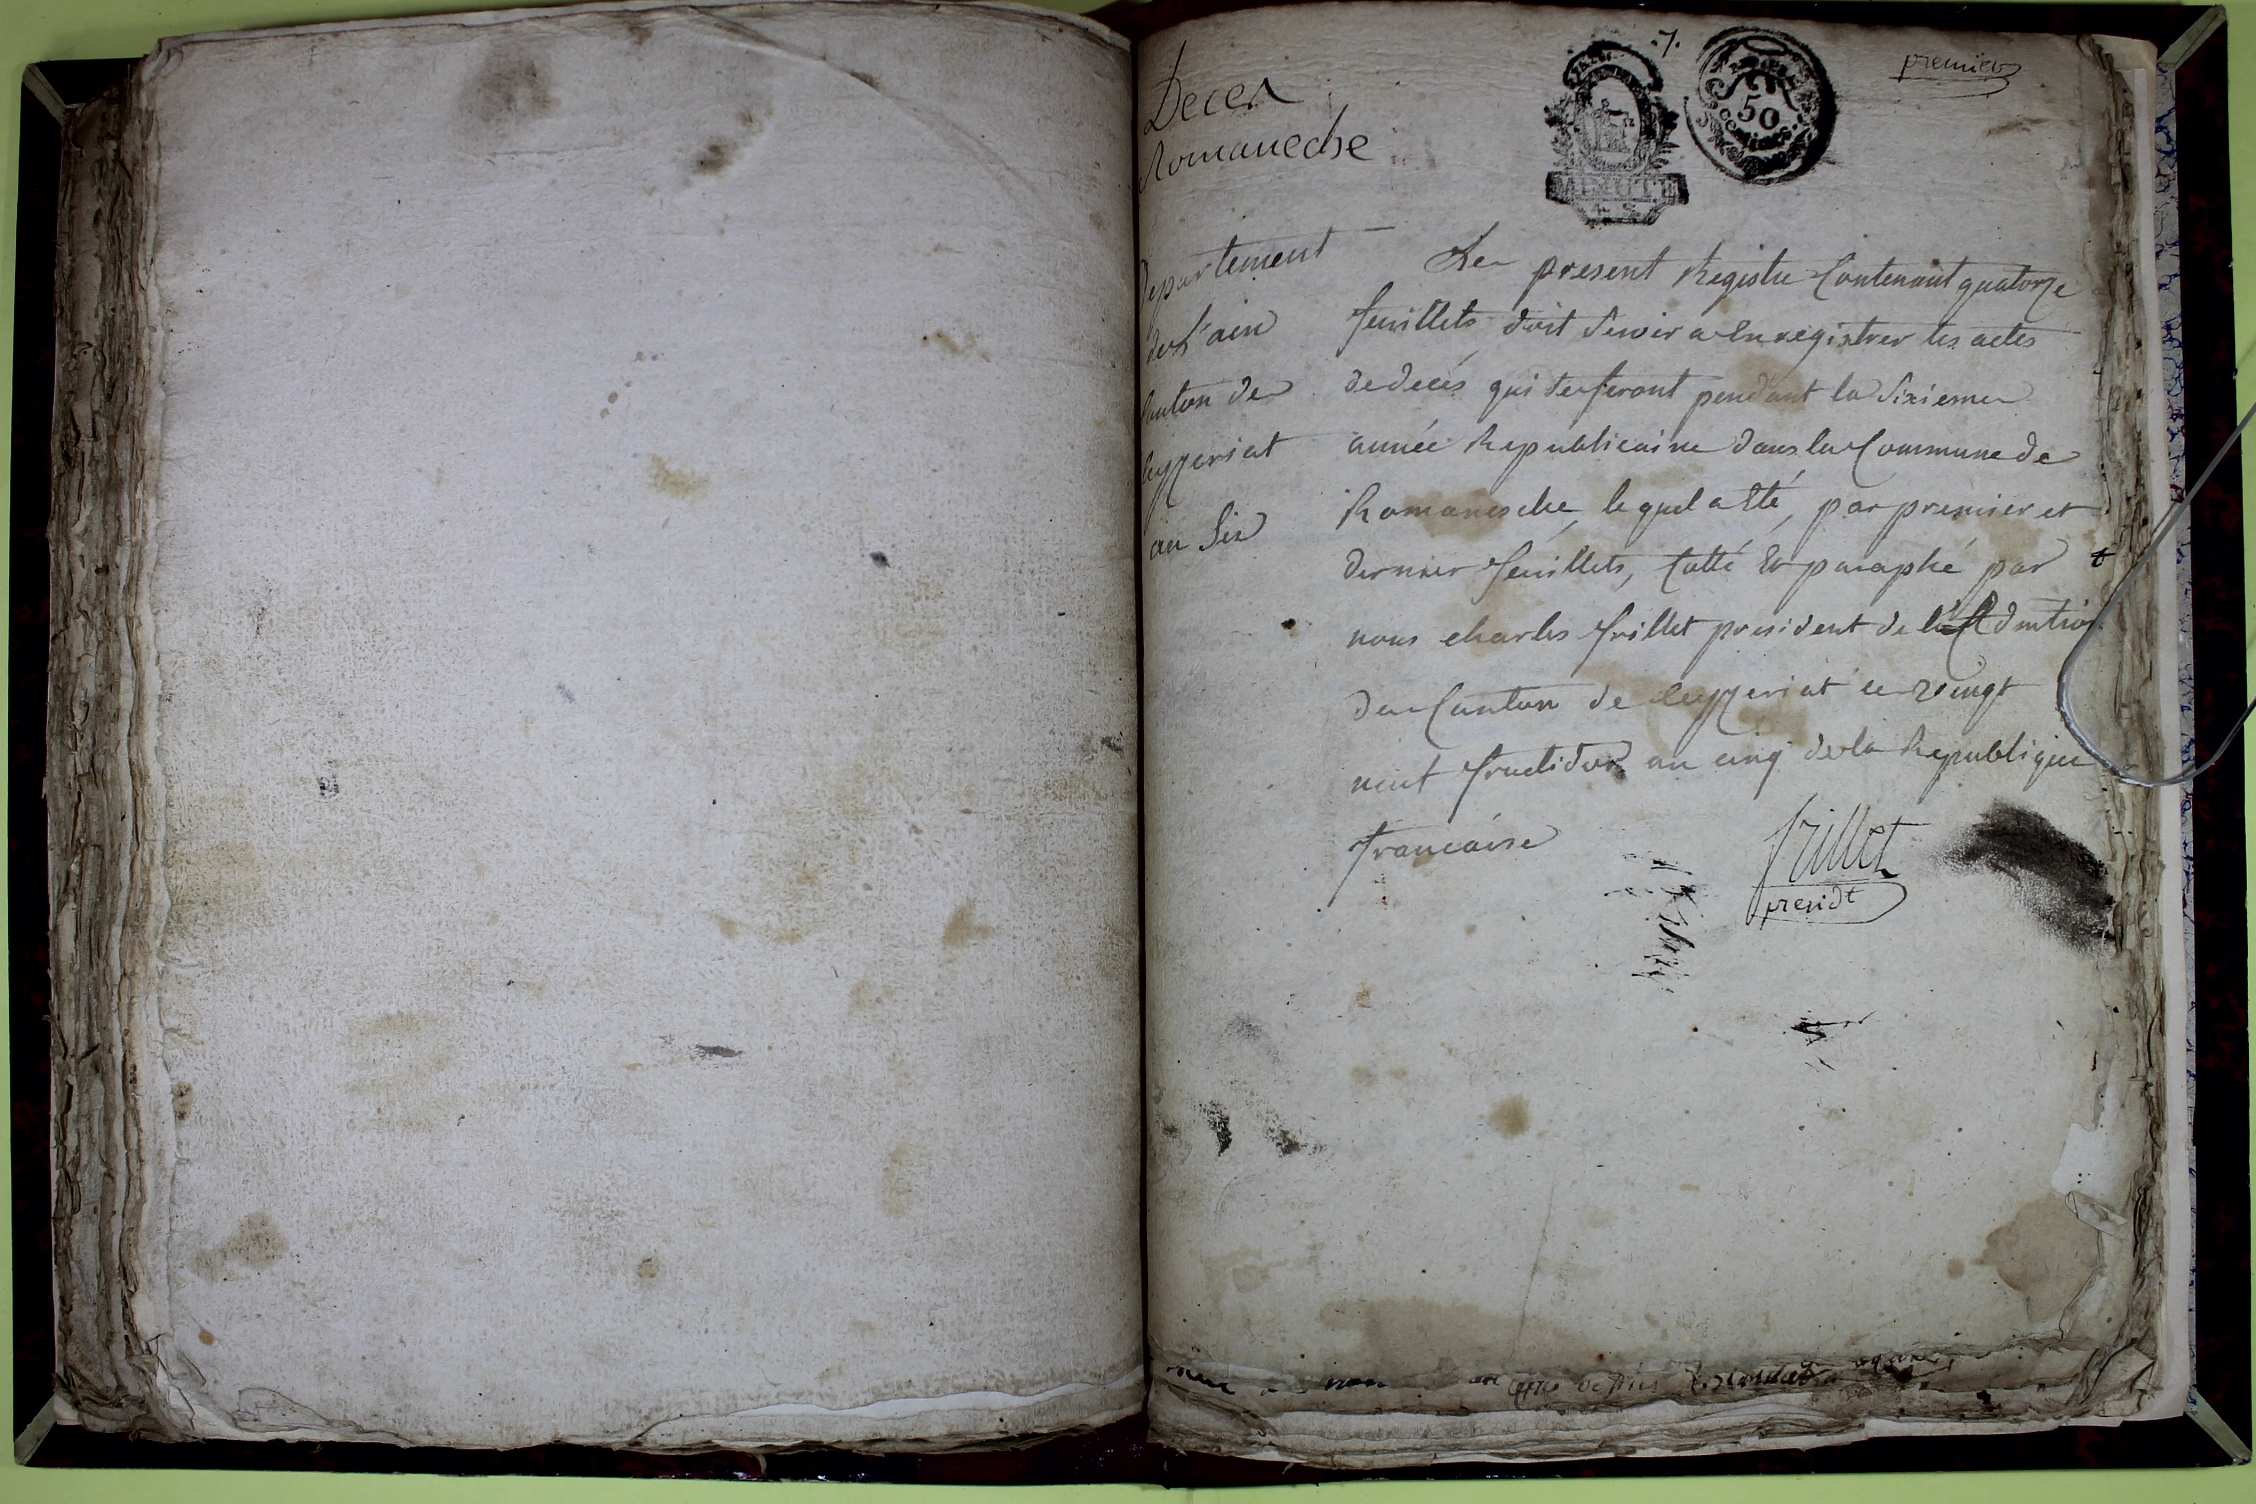 .7.
premier
50
Deces
Romaneche
Departement
de L'ain
Canton de
Ceyzeriat
an Six
Le present Registre Contenant quatorze
feuillets doit Servir a Enregistrer les actes
de decés qui se feront pendant la Sixieme
année Republicaine dans la Commune de
Romanesche, le quel a Eté, par premier et
dernier feuillets, Cotté Et paraphé par
nous charles frillet president de l'Admtion
du Canton de Ceyzeriat ce vingt
neuf fructidor an cinq de la Republique
francaise
frillet
presidt